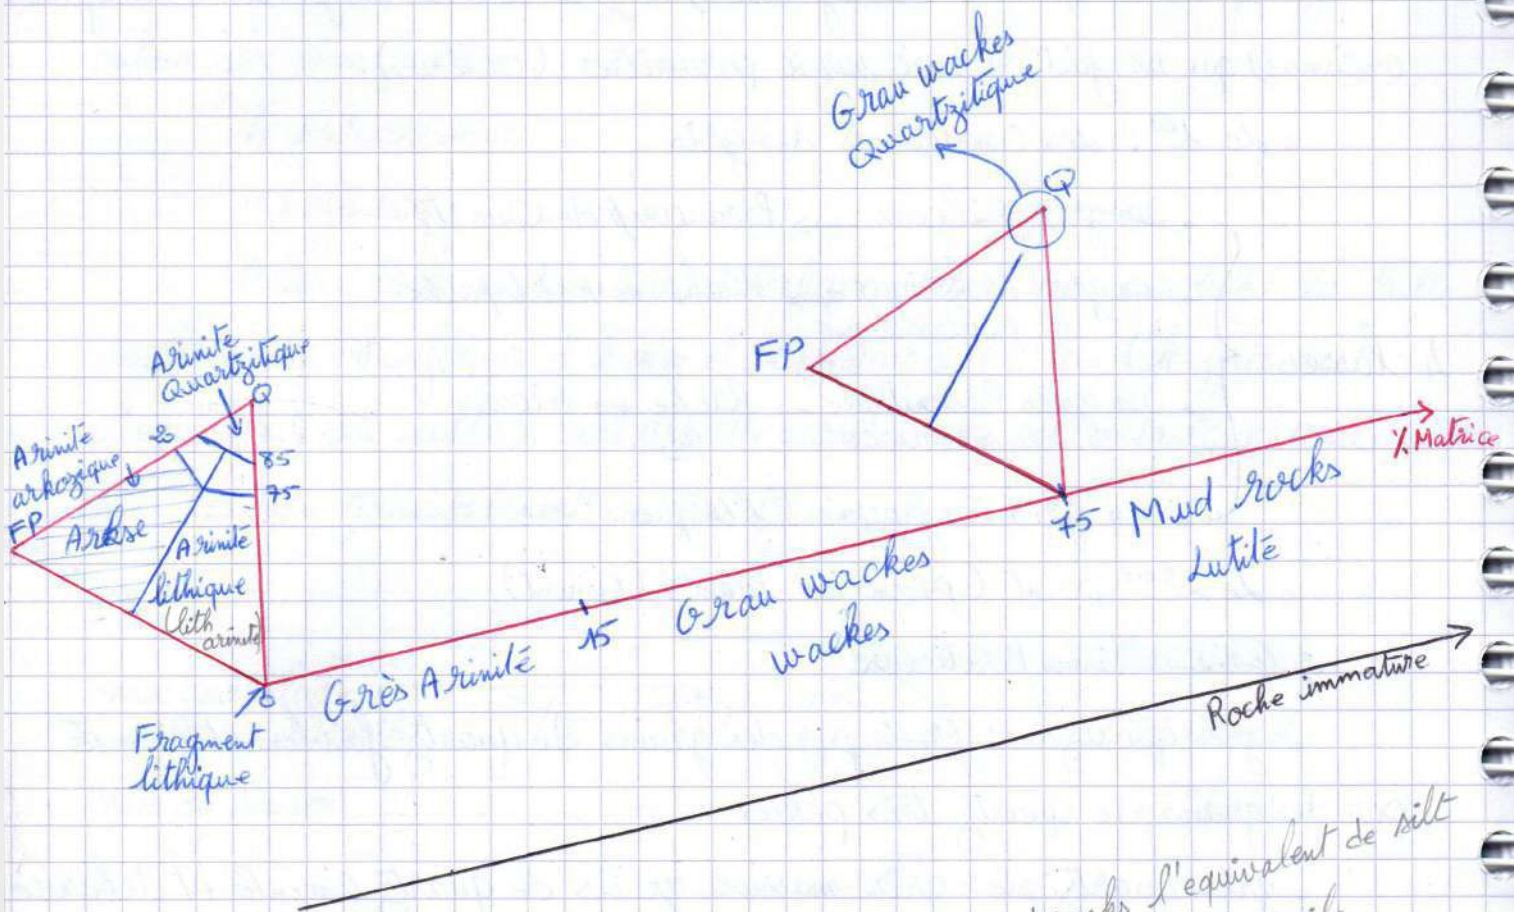 Grau wackes
Quartzitique
Q
FP
Arinité
Quartzitique
Q
20
85
75
Arinité
arkozique
FP
Arkse
Arinité
lithique
(lith
arinité)
0
Fragment
lithique
Grès Arinité
15
Grau wackes
wackes
75
Mud rocks
Lutité
% Matrice
Roche immature
l'equivalent de silt